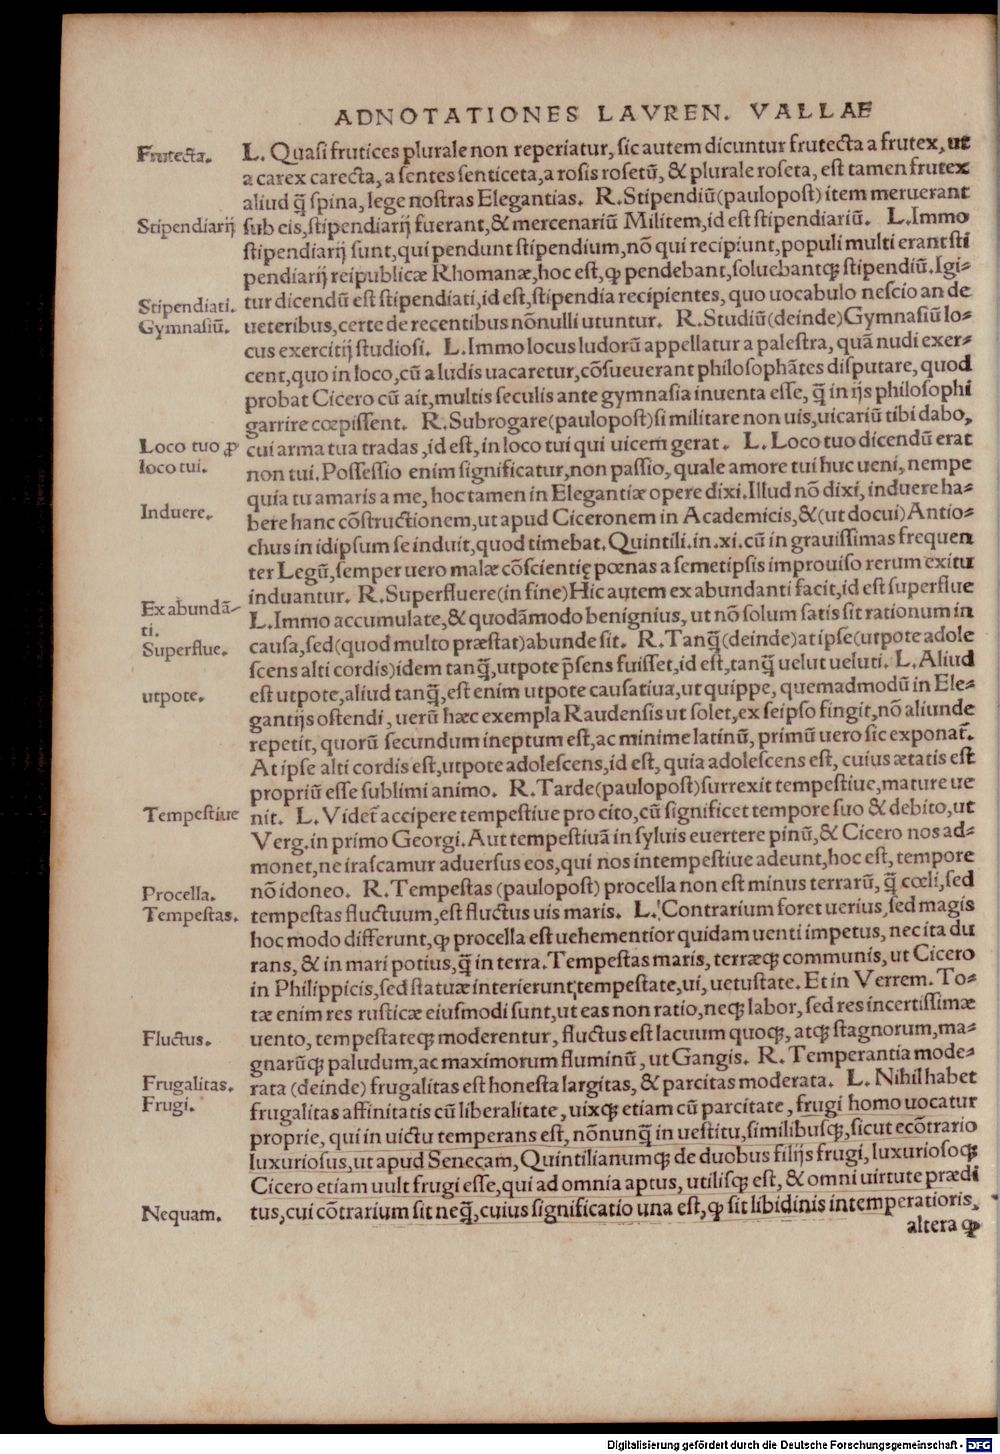 ADNOTATIONES LAVREN. VALLAE
Frutecta. L. Quasi frutices plurale non reperiatur, sic autem dicuntur frutecta a frutex, ut
a carex carecta, a sentes senticeta, a rosis rosetū, & plurale roseta, est tamen frutex
aliud q̄ spina, lege nostras Elegantias. R. Stipendiū(paulopost) item meruerant
Stipendiarij sub eis, stipendiarij fuerant, & mercenariū Militem, id est stipendiariū. L. Immo
stipendiarij sunt, qui pendunt stipendium, nō qui recipiunt, populi multi erant sti
pendiarij reipublicæ Rhomanæ, hoc est, ꝙ pendebant, soluebantꝗ stipendiū. Igi-
Stipendiati. tur dicendū est stipendiati, id est, stipendia recipientes, quo uocabulo nescio an de
Gymnasiū. ueteribus, certe de recentibus nōnulli utuntur. R. Studiū(deinde)Gymnasiū lo-
cus exercitij studiosi. L. Immo locus ludorū appellatur a palestra, quā nudi exer-
cent, quo in loco, cū a ludis uacaretur, cōsueuerant philosophātes disputare, quod
probat Cicero cū ait, multis seculis ante gymnasia inuenta esse, q̄ in ijs philosophi
garrire cœpissent. R. Subrogare(paulopost)si militare non uis, uicariū tibi dabo,
Loco tuo ꝓ cui arma tua tradas, id est, in loco tui qui uicem gerat. L. Loco tuo dicendū erat
loco tui. non tui. Possessio enim significatur, non passio, quale amore tui huc ueni, nempe
quia tu amaris a me, hoc tamen in Elegantiæ opere dixi. Illud nō dixi, induere ha-
Induere. bere hanc cōstructionem, ut apud Ciceronem in Academicis, &(ut docui) Antio-
chus in idipsum se induit, quod timebat. Quintili. in. xi. cū in grauissimas frequen
ter Legū, semper uero malæ cōscientię pœnas a semetipsis improuiso rerum exitu
induantur. R. Superfluere(in fine)Hic autem ex abundanti facit, id est superflue
Ex abundā- L. Immo accumulate, & quodāmodo benignius, ut nō solum satis sit rationum in
ti.
Superflue. causa, sed(quod multo præstat)abunde sit. R. Tanq̄(deinde)at ipse(utpote adole
scens alti cordis)idem tanq̄, utpote p̄sens fuisset, id est, tanq̄ uelut ueluti. L. Aliud
utpote. est utpote, aliud tanq̄, est enim utpote causatiua, ut quippe, quemadmodū in Ele-
gantijs ostendi, uerū hæc exempla Raudensis ut solet, ex seipso fingit, nō aliunde
repetit, quorū secundum ineptum est, ac minime latinū, primū uero sic exponat̄.
At ipse alti cordis est, utpote adolescens, id est, quia adolescens est, cuius ætatis est
propriū esse sublimi animo. R. Tarde(paulopost)surrexit tempestiue, mature ue
Tempestiue nit. L. Videt̄ accipere tempestiue pro cito, cū significet tempore suo & debito, ut
Verg. in primo Georgi. Aut tempestiuā in syluis euertere pinū, & Cicero nos ad-
monet, ne irascamur aduersus eos, qui nos intempestiue adeunt, hoc est, tempore
Procella. nō idoneo. R. Tempestas (paulopost) procella non est minus terrarū, q̄ cœli, sed
Tempestas. tempestas fluctuum, est fluctus uis maris. L. Contrarium foret uerius, sed magis
hoc modo differunt, ꝙ procella est uehementior quidam uenti impetus, nec ita du
rans, & in mari potius, q̄ in terra. Tempestas maris, terræꝗ communis, ut Cicero
in Philippicis, sed statuæ interierunt tempestate, ui, uetustate. Et in Verrem. To-
tæ enim res rusticæ eiusmodi sunt, ut eas non ratio, neꝗ labor, sed res incertissimæ
Fluctus. uento, tempestateꝗ moderentur, fluctus est lacuum quoꝗ, atꝗ stagnorum, ma-
gnarūꝗ paludum, ac maximorum fluminū, ut Gangis. R. Temperantia mode-
Frugalitas. rata (deinde) frugalitas est honesta largitas, & parcitas moderata. L. Nihil habet
Frugi. frugalitas affinitatis cū liberalitate, uixꝗ etiam cū parcitate, frugi homo uocatur
proprie, qui in uictu temperans est, nōnunq̄ in uestitu, similibusꝗ, sicut ecōtrario
luxuriosus, ut apud Senecam, Quintilianumꝗ de duobus filijs frugi, luxuriosoꝗ
Cicero etiam uult frugi esse, qui ad omnia aptus, utilisꝗ est, & omni uirtute prædi
Nequam. tus, cui cōtrarium sit neq̄, cuius significatio una est, ꝙ sit libidinis intemperatioris,
altera ꝙ
Digitalisierung gefördert durch die Deutsche Forschungsgemeinschaft - DFG